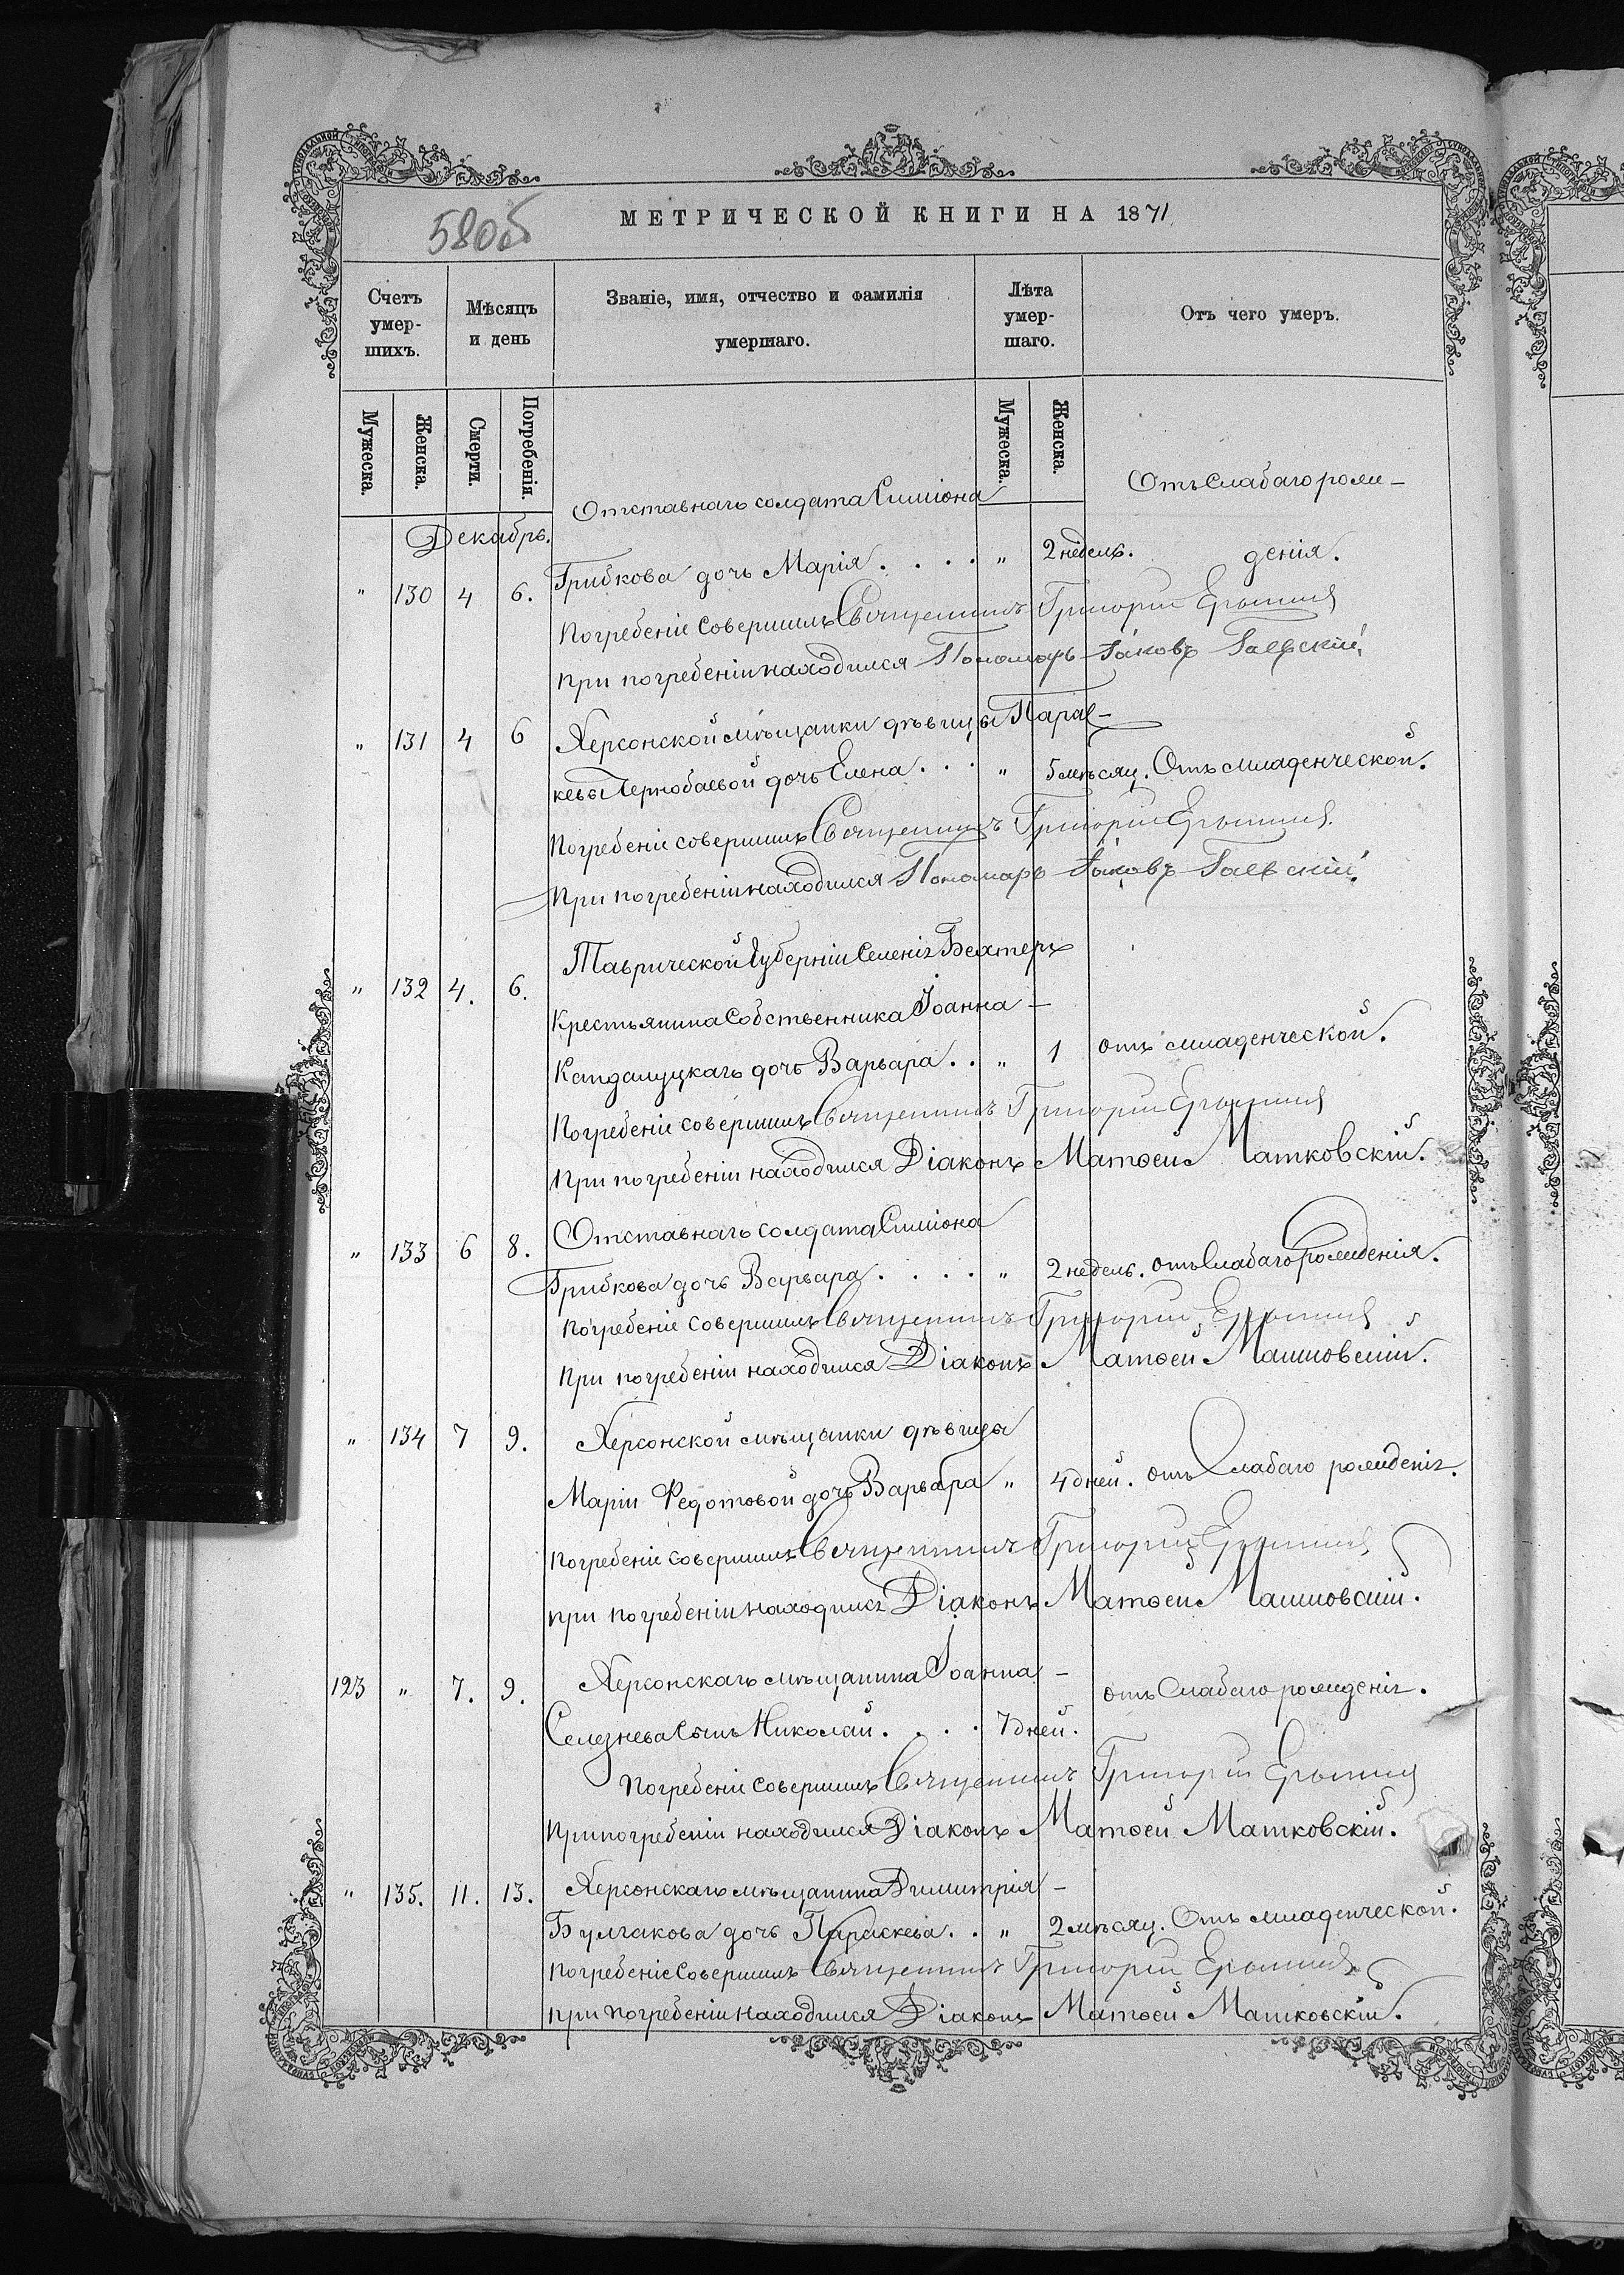 580об
МЕТРИЧЕСКОЙ КНИГИ НА 1871
Счетъ умер-шихъ.
Мѣсяцъ и день
Званіе, имя, отчество и фамилія умершаго.
Лѣта умер-шаго.
Отъ чего умеръ.
Мужеска.
Женска.
Смерти.
Погребенія.
Мужеска.
Женска.
Декабрь.
Отставнаго солдата Симіона Отъ слабаго рож-
" 130 4 6. Грибкова дочь Марія . . . . " 2 недель. денія.
Погребеніе совершилъ Священникъ Григорій
При погребеніи находился Пономарь Іаковъ Гаевскій.
" 131 4 6 Херсонской мѣщанки дѣвицы Парас-
кевы Чернобаевой дочь Елена . . . " 5 мѣсяц. Отъ младенческой.
Погребеніе совершилъ Священникъ Григорій
При погребеніи находился Пономарь Іаковъ Гаевскій.
" 132 4. 6. Таврической Губерніи Селенія Бехтеръ
Крестьянина Собственника Іоанна -
дочь Варвара . . " 1 отъ младенческой.
Погребеніе совершилъ Священникъ Григорій
При погребеніи находился Діаконъ Матѳей Матковскій.
" 133 6 8. Отставнаго солдата Симіона
Грибкова дочь Варвара . . . . " 2 недель. отъ слабаго рожденія.
Погребеніе совершилъ Священникъ Григорій
При погребеніи находился Діаконъ Матѳей Матковскій.
" 134 7 9. Херсонской мѣщанки дѣвицы
Маріи Федотовой дочь Варвара " 4 дней. отъ Слабаго рожденія.
Погребеніе совершилъ Священникъ Григорій
при погребеніи находился Діаконъ Матѳей Матковскій.
123 " 7. 9. Херсонскаго мѣщанина Іоанна - отъ Слабаго рожденія.
Селезнева сынъ Николай . . . . 7 дней.
Погребеніе совершилъ Священникъ Григорій
При погребеніи находился Діаконъ Матѳей Матковскій.
" 135. 11. 13. Херсонскаго мѣщанина Димитрія -
Булгакова дочь Параскева . . " 2 мѣсяц. Отъ младенческой.
Погребеніе Совершилъ Священникъ Григорій
При погребеніи находился Діаконъ Матѳей Матковскій.